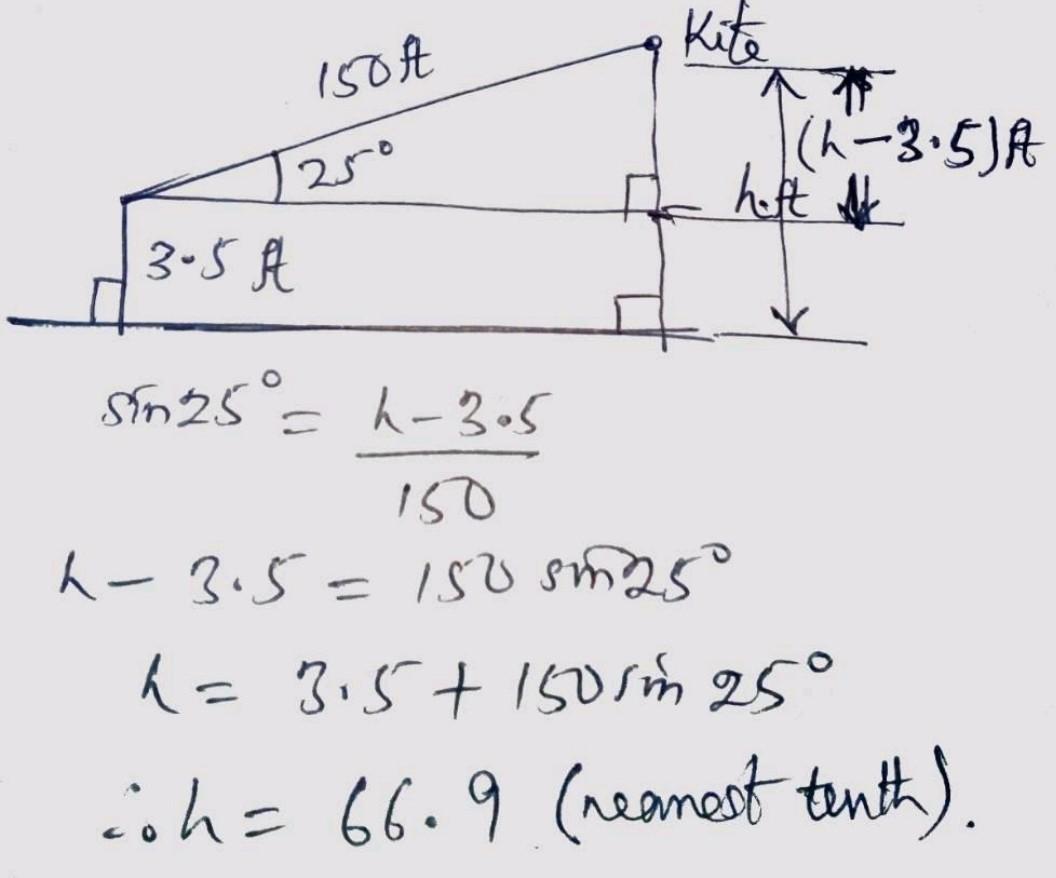 Kite
150 ft
(h-3.5)ft
25°
h.ft
3.5 ft
sin25° = h-3.5
150
h- 3.5 = 150 sin25°
h = 3.5 + 150 sin 25°
∴ h = 66.9 (nearest tenth).